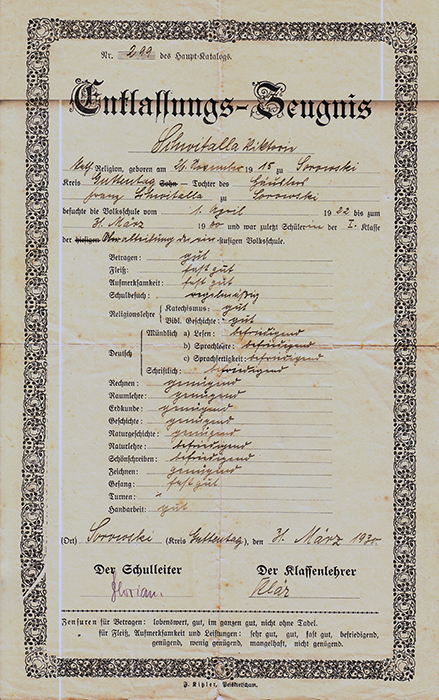 Nr. 299 des Haupt-Katalogs.
Entlassungs-Zeugnis
Schwitalla Viktorie
kath. Religion, geboren am 26. November 1915 zu Sorowski
Kreis Guttentag Sohn – Tochter des Häuslers
Franz Schwitalla zu Sorowski
besuchte die Volksschule vom 1. April 1922 bis zum
31. März 1930 und war zuletzt Schülerin der I. Klasse
der -stufigen Volksschule.
Betragen: gut
Fleiß: fast gut
Aufmerksamkeit: fast gut
Schulbesuch: regelmäßig
Religionslehre Katechismus: gut
Bibl. Geschichte: gut
Deutsch Mündlich a) Lesen: befriedigend
b) Sprachlehre: befriedigend
c) Sprachfertigkeit: befriedigend
Schriftlich: befriedigend
Rechnen: genügend
Raumlehre: genügend
Erdkunde: genügend
Geschichte: genügend
Naturgeschichte: genügend
Naturlehre: befriedigend
Schönschreiben: befriedigend
Zeichnen: genügend
Gesang: fast gut
Turnen: "
Handarbeit: gut
(Ort) Sorowski (Kreis Guttentag), den 31. März 1930.
Der Schulleiter Der Klassenlehrer
Florian. Klär
Zensuren für Betragen: lobenswert, gut, im ganzen gut, nicht ohne Tadel.
für Fleiß, Aufmerksamkeit und Leistungen: sehr gut, gut, fast gut, befriedigend,
genügend, wenig genügend, mangelhaft, nicht genügend.